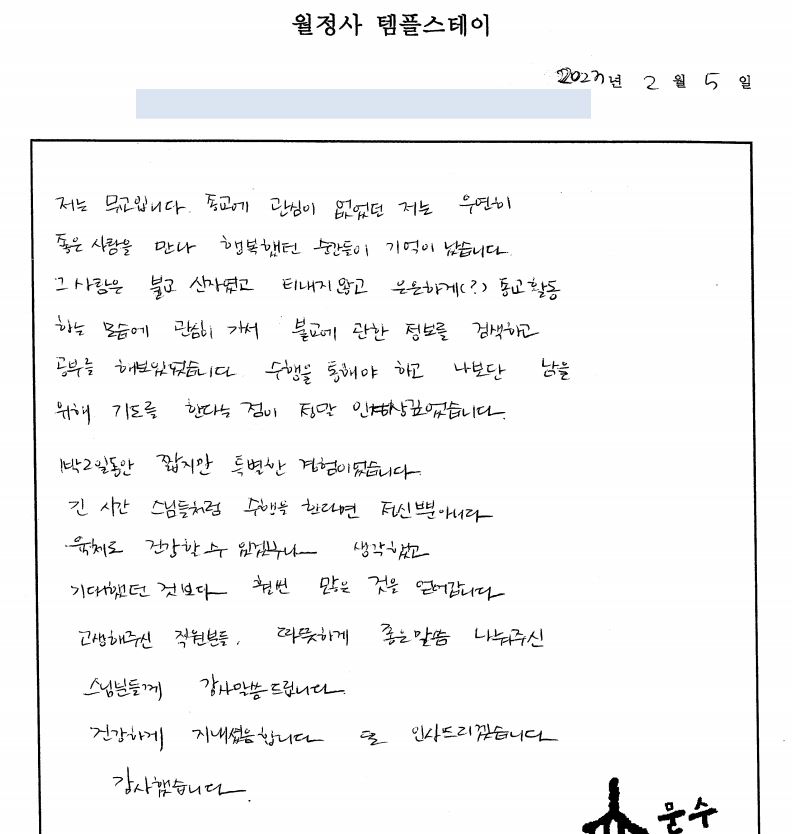 월정사 템플스테이
2023년 2월 5일
저는 무교입니다. 종교에 관심이 없었던 저는 우연히
좋은 사람을 만나 행복했던 순간들이 기억이 남습니다.
그 사람은 불교 신자였고 티내지않고 은은하게(?) 종교활동
하는 모습에 관심이 가서 불교에 관한 정보를 검색하고
공부를 해보았었습니다. 수행을 통해야 하고 나보단 남을
위해 기도를 한다는 점이 정말 인상깊었습니다.
1박2일동안 짧지만 특별한 경험이었습니다.
긴 시간 스님들처럼 수행을 한다면 정신뿐아니라
육체로 건강할 수 있겠구나 생각했고
기대했던 것보다 훨씬 많은 것을 얻어갑니다
고생해주신 직원분들, 따뜻하게 좋은말씀 나눠주신
스님분들께 감사말씀드립니다.
건강하게 지내셨음합니다 또 인사드리겠습니다
감사했습니다.
문수